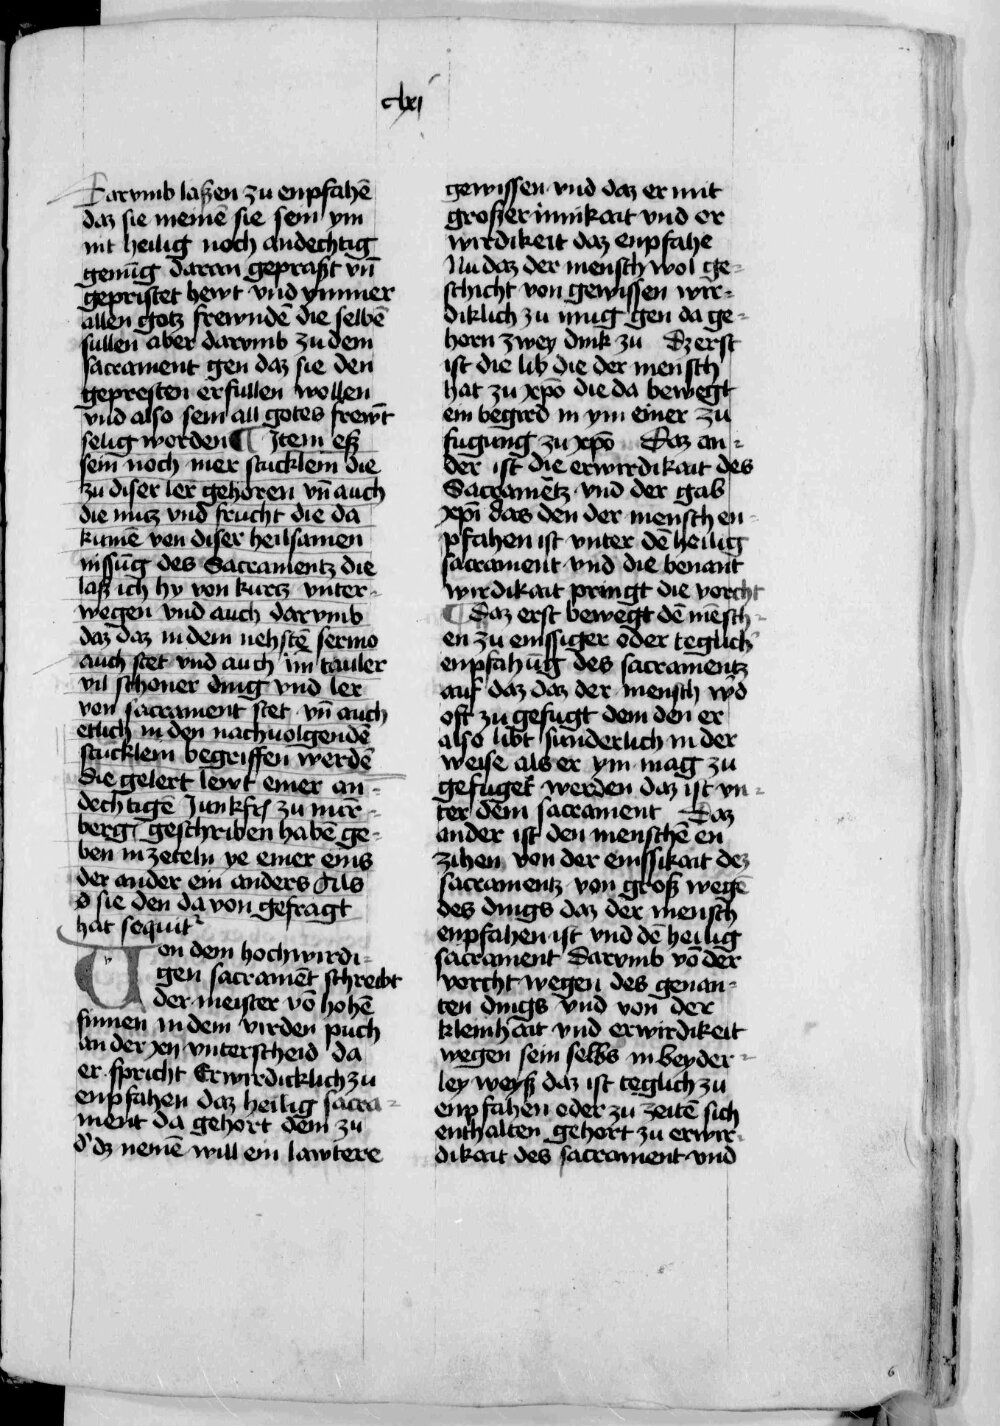 clxi
Darvmb laßen zu enpfahē
daz sie meinē sie sein ym
nit heilig noch andechtig
genūg daran geprast vn̄
gepristet hewt vnd ymmer
allen gotz frewndē die selbē
sullen aber darvmb zu dem
sacrament gen daz sie den
gepresten erfullen wollen
vnd also sein all gotes frewt
selig worden ¶ Item eß
sein noch mer stucklein die
zu diser ler gehoren vn̄ auch
die nutz vnd frucht die da
kumē von diser heilsamen
nissūg des Sacramentz die
laß ich hy von kurtz vnter
wegen vnd auch darvmb
daz daz in dem nehstē sermo
auch stet vnd auch im tauler
vil schoner ding vnd ler
von sacrament stet vn̄ auch
etlich in den nachuolgendē
stucklein begriffen werdē
die gelert lewt einer an=
dechtigē Junkfr̄ zu nür=
berg geschriben habē ge=
ben in zeteln ye einer eins
der ander ein anders Als
d sie den da von gefragt
hat sequitr
Von dem hochwirdi=
gen sacramēt schreibt
der meister vō hohē
sinnen in dem virden puch
an der xen vnterscheid da
er spricht Erwirdicklich zu
enpfahen daz heilig sacra=
ment da gehort dem zu
d' dz nemē will ein lawtere
gewissen vnd daz er mit
großer innikait vnd er
wirdikeit daz enpfahe
Nu daz der mensch wol ge=
schicht von gewissen wir=
diklich zu mug gen da ge=
horn zwey dink zu Dz erst
ist die lib die der mensch
hat zu xpō die da bewegt
ein begird in ym einer zu
fugung zu xpō Daz an=
der ist die erwirdikait des
Sacramētz vnd der gab
xpi das den der mensch en=
pfahen ist vnter dē heilig
sacrament vnd die benant
wirdikait pringt die vorcht
¶ Daz erst bewegt dē mēsch=
en zu emssiger oder teglich'
enpfahūg des sacramentz
auf daz daz der mensch w'd
oft zu gefugt dem den er
also libt sunderlich in der
weise als er ym mag zu
gefuget werden daz ist vn=
ter dem sacrament Daz
ander ist den menschē en
zihen von der emssikait dez
sacramentz von groß wegē
des dings daz der mensch
enpfahen ist vnd dē heilig
sacrament Darvmb vō der
vorcht wegen des genan=
ten dings vnd von der
kleinhait vnd erwirdikeit
wegen sein selbs in beyder=
ley weyß daz ist teglich zu
enpfahen oder zu zeitē sich
enthalten gehort zu erwir=
dikait des sacrament vnd
6